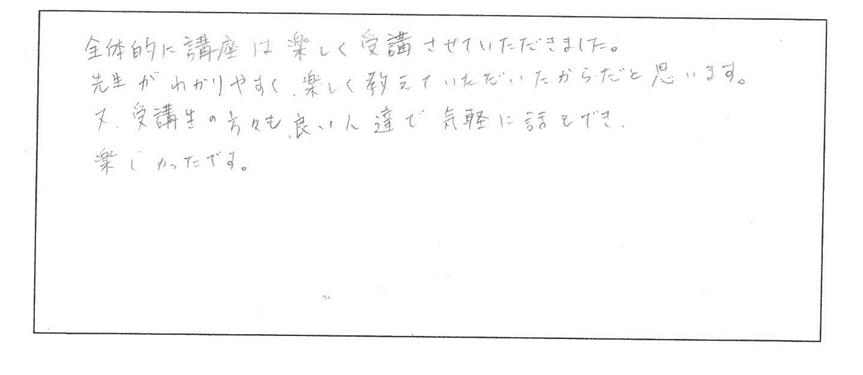 全体的に講座は楽しく受講させていただきました。
先生がわかりやすく、楽しく教えていただいたからだと思います。
又、受講生の方々も良い人達で気軽に話もでき、
楽しかったです。